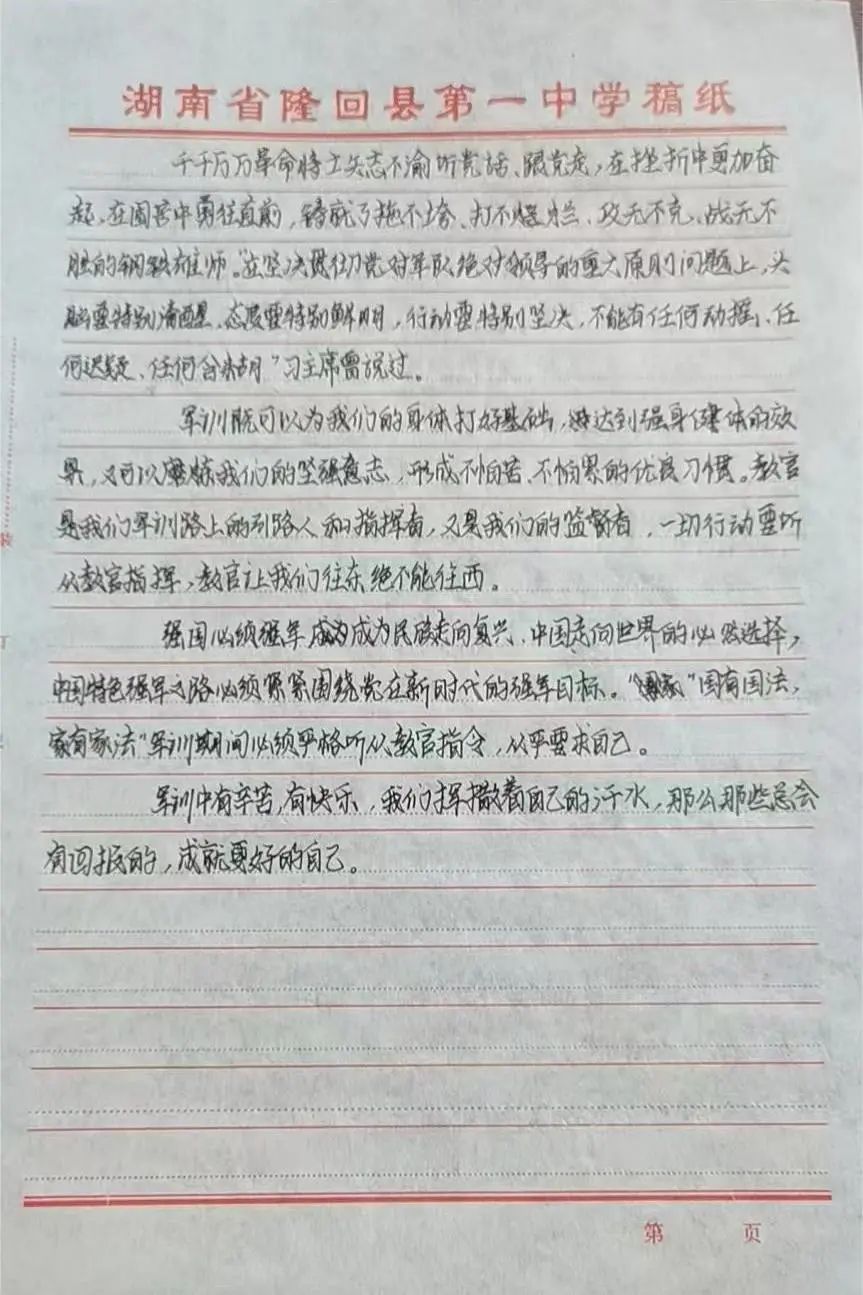 湖南省隆回县第一中学稿纸
千千万万革命将士矢志不渝听党话、跟党走，在挫折中更加奋
起，在困苦中勇往直前，铸就了拖不垮、打不烂、攻无不克、战无不
胜的钢铁雄师。"在坚决贯彻党对军队绝对领导的重大原则问题上，头
脑要特别清醒、态度要特别鲜明，行动要特别坚决，不能有任何动摇、任
何迟疑、任何含糊"习主席曾说过。
军训既可以为我们的身体打好基础，达到强身健体的效
果，又可以磨炼我们的坚强意志，形成不怕苦、不怕累的优良习惯。教官
是我们军训路上的引路人和指挥者，又是我们的监督者，一切行动要听
从教官指挥，教官让我们往东绝不能往西。
强国必须强军成为民族走向复兴、中国走向世界的必然选择，
中国特色强军之路必须紧紧围绕党在新时代的强军目标。"国有国法，
家有家法"军训期间必须严格听从教官指令，从严要求自己。
军训中有辛苦，有快乐，我们挥撒着自己的汗水，那么那些总会
有回报的，成就更好的自己。
装
订
第 页